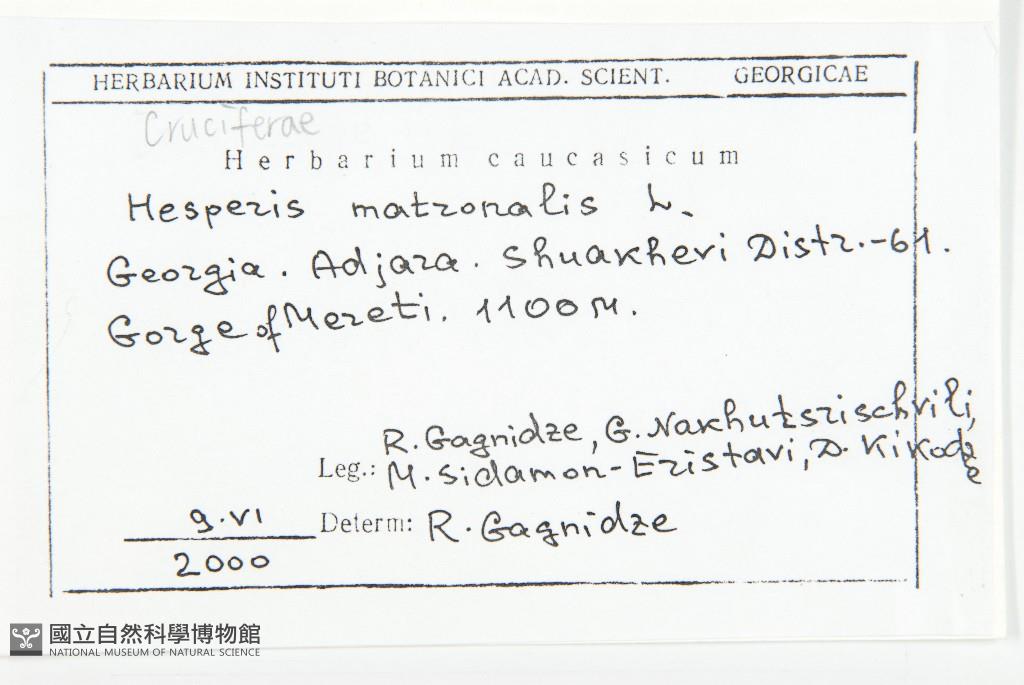 HERBARIUM INSTITUTI BOTANICI ACAD. SCIENT. GEORGICAE
Cruciferae
Herbarium caucasicum
Hesperis matronalis L.
Georgia. Adjara. Shuakhevi Distr.-61.
Gorge of Mereti. 1100 M.
R. Gagnidze, G. Nakhutsrischvili,
Leg.: M. Sidamon-Eristavi, D. Kikodze
9.VI Determ: R. Gagnidze
2000
國立自然科學博物館
NATIONAL MUSEUM OF NATURAL SCIENCE